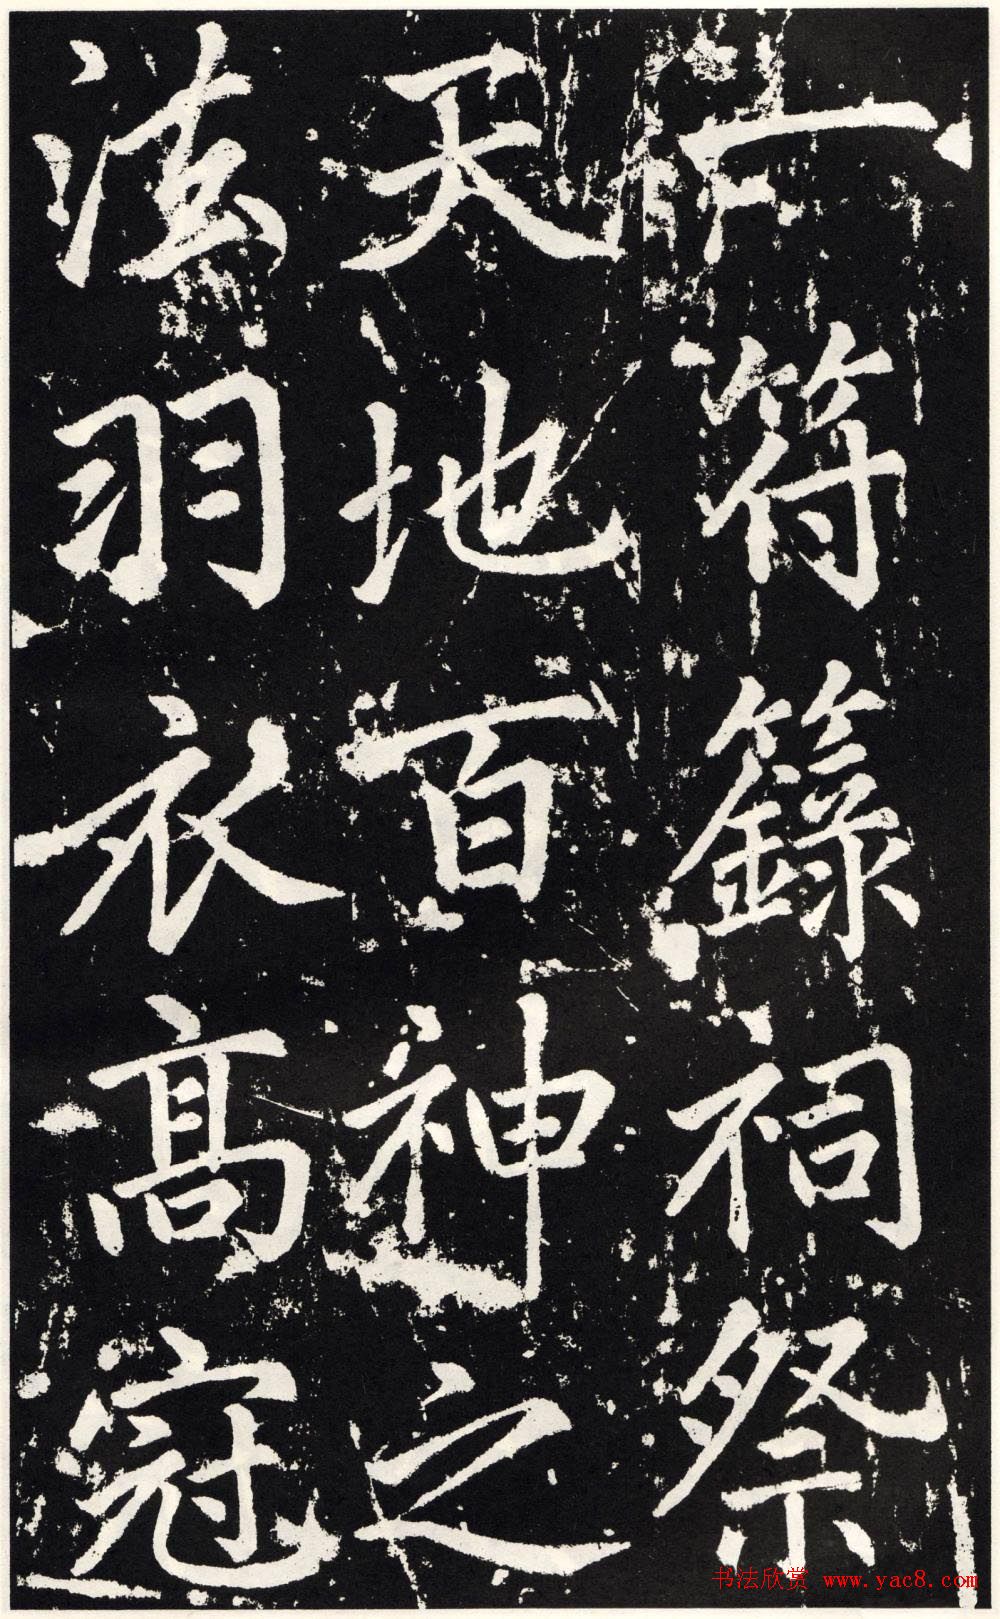 符籙祠祭
天地百神之
法羽衣髙冠
书法欣赏 www.yac8.com